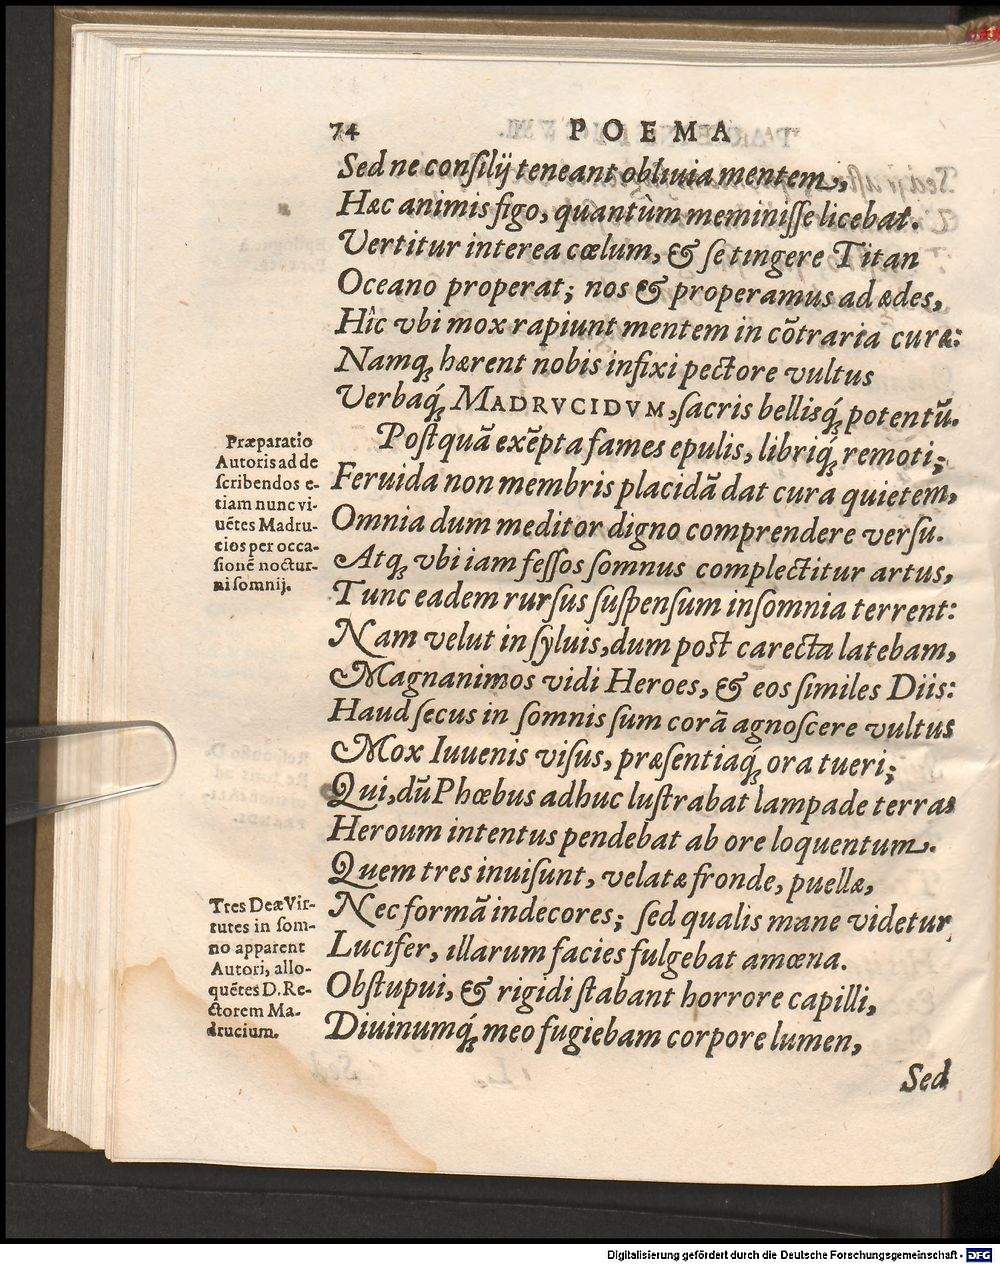 74 POEMA
Sed ne conſilij teneant obliuia mentem,
Hæc animis figo, quantùm meminiſſe licebat.
Vertitur interea cœlum, & ſe tingere Titan
Oceano properat; nos & properamus ad ædes,
Hîc vbi mox rapiunt mentem in cõtraria curæ:
Namq́; hærent nobis infixi pectore vultus
Verbaq́;, MADRVCIDVM, ſacris bellisq́; potentũ.
Poſtquã exẽpta fames epulis, libriq́; remoti;
Feruida non membris placidã dat cura quietem,
Omnia dum meditor digno comprendere verſu.
Atq; vbi iam feſſos ſomnus complectitur artus,
Tunc eadem rurſus ſuſpenſum inſomnia terrent:
Nam velut in ſyluis, dum poſt carecta latebam,
Magnanimos vidi Heroes, & eos ſimiles Diis:
Haud ſecus in ſomnis ſum corã agnoſcere vultus
Mox Iuuenis viſus, præſentiaq́; ora tueri;
Qui, dũ Phœbus adhuc luſtrabat lampade terras
Heroum intentus pendebat ab ore loquentum.
Quem tres inuiſunt, velatæ fronde, puellæ,
Nec formã indecores; ſed qualis mane videtur
Lucifer, illarum facies fulgebat amœna.
Obſtupui, & rigidi ſtabant horrore capilli,
Diuinumq́; meo fugiebam corpore lumen,
Sed
Præparatio
Autoris ad de
ſcribendos e-
tiam nunc vi-
uẽtes Madru-
cios per occa-
ſionẽ noctur-
ni ſomnij.
Tres Deæ Vir-
tutes in ſom-
no apparent
Autori, allo-
quẽtes D. Re-
ctorem Ma-
drucium.
Digitalisierung gefördert durch die Deutsche Forschungsgemeinschaft - DFG